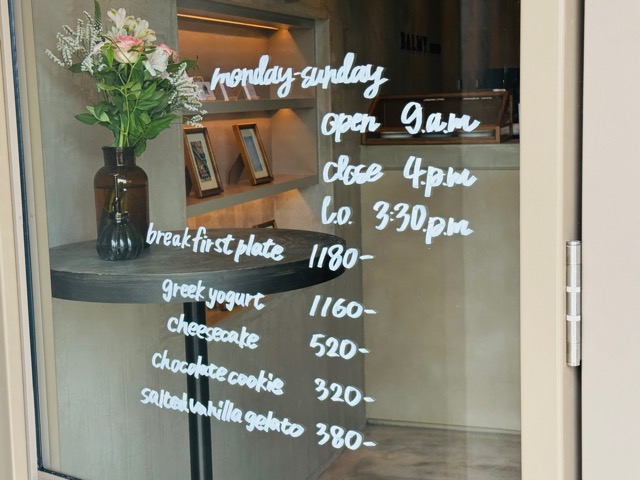 BALMY
monday-sunday
open 9.a.m
close 4.p.m
l.o. 3:30.p.m
breakfirst plate 1180-
greek yogurt 1160-
cheesecake 520-
chocolate cookie 320-
salted vanilla gelato 380-